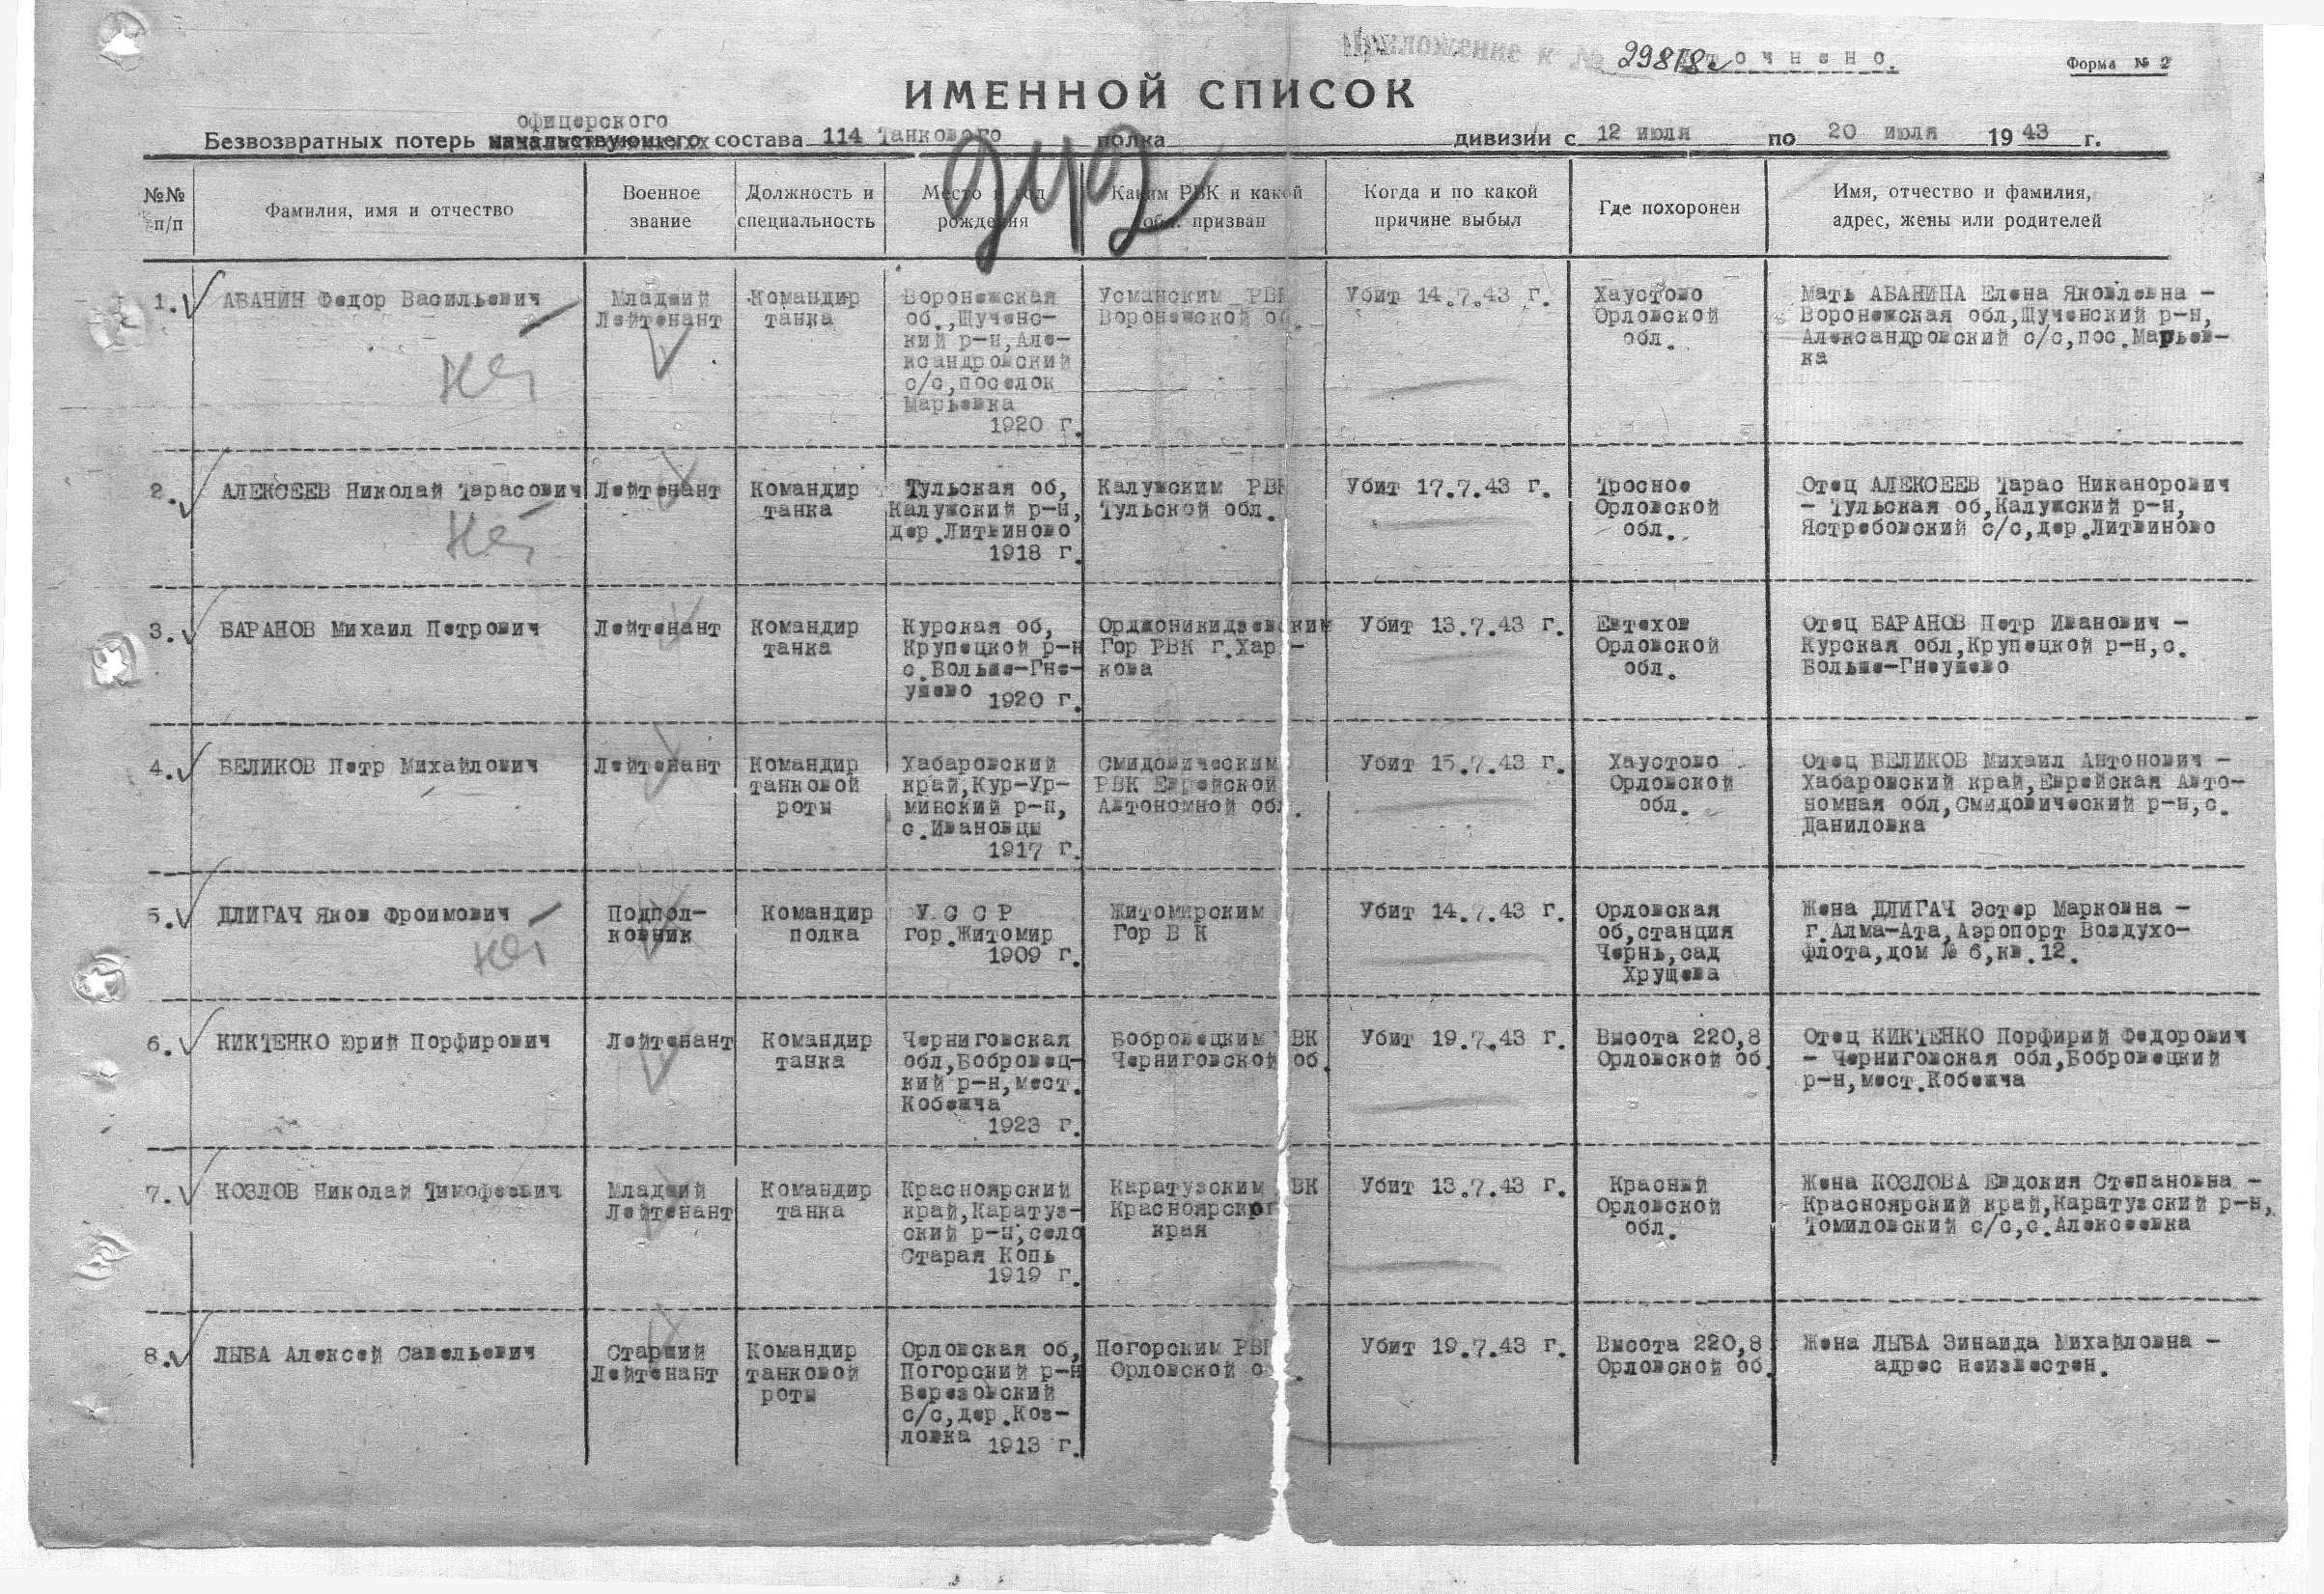 Приложение к № 29818с Уточнено.
Форма № 2
ИМЕННОЙ СПИСОК
офицерского
Безвозвратных потерь начальствующего состава 114 Танкового полка дивизии с 12 июля по 20 июля 1943 г.
242
№№ п/п
Фамилия, имя и отчество
Военное звание
Должность и специальность
Место и год рождения
Каким РВК и какой обл. призван
Когда и по какой причине выбыл
Где похоронен
Имя, отчество и фамилия, адрес, жены или родителей
1.
АБАНИН Федор Васильевич
Младший
Лейтенант
Командир
танка
Воронежская
об.,Щученс-
кий р-н,Але-
ксандровский
с/с,поселок
Марьевка
1920 г.
Усманским РВК
Воронежской об.
Убит 14.7.43 г.
Хаустово
Орловской
обл.
Мать АБАНИНА Елена Яковлевна -
Воронежская обл,Щученский р-н,
Александровский с/с,пос.Марьев-
ка
2.
АЛЕКСЕЕВ Николай Тарасович
Лейтенант
Командир
танка
Тульская об,
Калужский р-н,
дер.Литвиново
1918 г.
Калужским РВК
Тульской обл.
Убит 17.7.43 г.
Тросное
Орловской
обл.
Отец АЛЕКСЕЕВ Тарас Никанорович
- Тульская об,Калужский р-н,
Ястребовский с/с,дер.Литвиново
3.
БАРАНОВ Михаил Петрович
Лейтенант
Командир
танка
Курская об,
Крупецкой р-н
с.Больше-Гне-
ушево
1920 г.
Орджоникидзевским
Гор РВК г.Харь-
кова
Убит 13.7.43 г.
Евтехов
Орловской
обл.
Отец БАРАНОВ Петр Иванович -
Курская обл,Крупецкой р-н,с.
Больше-Гнеушево
4.
БЕЛИКОВ Петр Михайлович
Лейтенант
Командир
танковой
роты
Хабаровский
край,Кур-Ур-
минский р-н,
с.Ивановцы
1917 г.
Смидовическим
РВК Еврейской
Автономной обл.
Убит 15.7.43 г.
Хаустово
Орловской
обл.
Отец БЕЛИКОВ Михаил Антонович -
Хабаровский край,Еврейская Авто-
номная обл,Смидовический р-н,с.
Даниловка
5.
ДЛИГАЧ Яков Фроимович
Подпол-
ковник
Командир
полка
У С С Р
гор.Житомир
1909 г.
Житомирским
Гор В К
Убит 14.7.43 г.
Орловская
об,станция
Чернь,сад
Хрущева
Жена ДЛИГАЧ Эстер Марковна -
г.Алма-Ата,Аэропорт Воздухо-
флота,дом № 6,кв.12.
6.
КИКТЕНКО Юрий Порфирович
Лейтенант
Командир
танка
Черниговская
обл,Бобровец-
кий р-н,мест.
Кобевча
1923 г.
Бобровецким РВК
Черниговской об.
Убит 19.7.43 г.
Высота 220,8
Орловской об.
Отец КИКТЕНКО Порфирий Федорович
- Черниговская обл,Бобровецкий
р-н,мест.Кобевча
7.
КОЗЛОВ Николай Тимофеевич
Младший
Лейтенант
Командир
танка
Красноярский
край,Каратуз-
ский р-н,село
Старая Копь
1919 г.
Каратузским РВК
Красноярског
края
Убит 13.7.43 г.
Красный
Орловской
обл.
Жена КОЗЛОВА Евдокия Степановна -
Красноярский край,Каратузский р-н,
Томиловский с/с,с.Алексеевка
8.
ЛЫВА Алексей Савельевич
Старший
Лейтенант
Командир
танковой
роты
Орловская об,
Погорский р-н
Березовский
с/с,дер.Коз-
ловка
1913 г.
Погорским РВК
Орловской о .
Убит 19.7.43 г.
Высота 220,8
Орловской об.
Жена ЛЫВА Зинаида Михайловна -
адрес неизвестен.